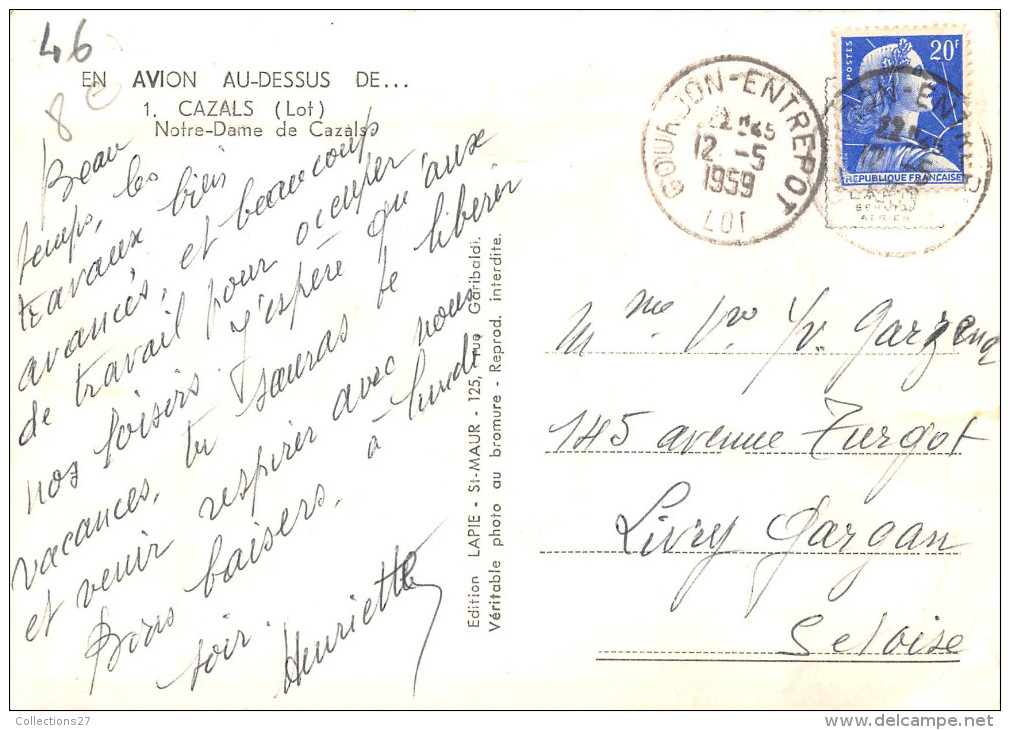 46
8€
EN AVION AU-DESSUS DE...
1. CAZALS (Lot)
Notre-Dame de Cazals
Beau
temps, les
travaux bien
avancés, et beaucoup
de travail pour occuper
nos loisirs. J'espère qu'aux
vacances, tu sauras te libérer
et venir respirer avec nous
Bons baisers, à lundi
soir.
Henriette
Edition LAPIE - St-MAUR - 125, rue Garibaldi.
Véritable photo au bromure - Reprod. interdite.
GOURDON-ENTREPOT
12 -5
1959
LOT
POSTES
20F
REPUBLIQUE FRANCAISE
Mme Vve Yv.
145 avenue Turgot
Livry Gargan
Se t oise
Collections27
www.delcampe.net